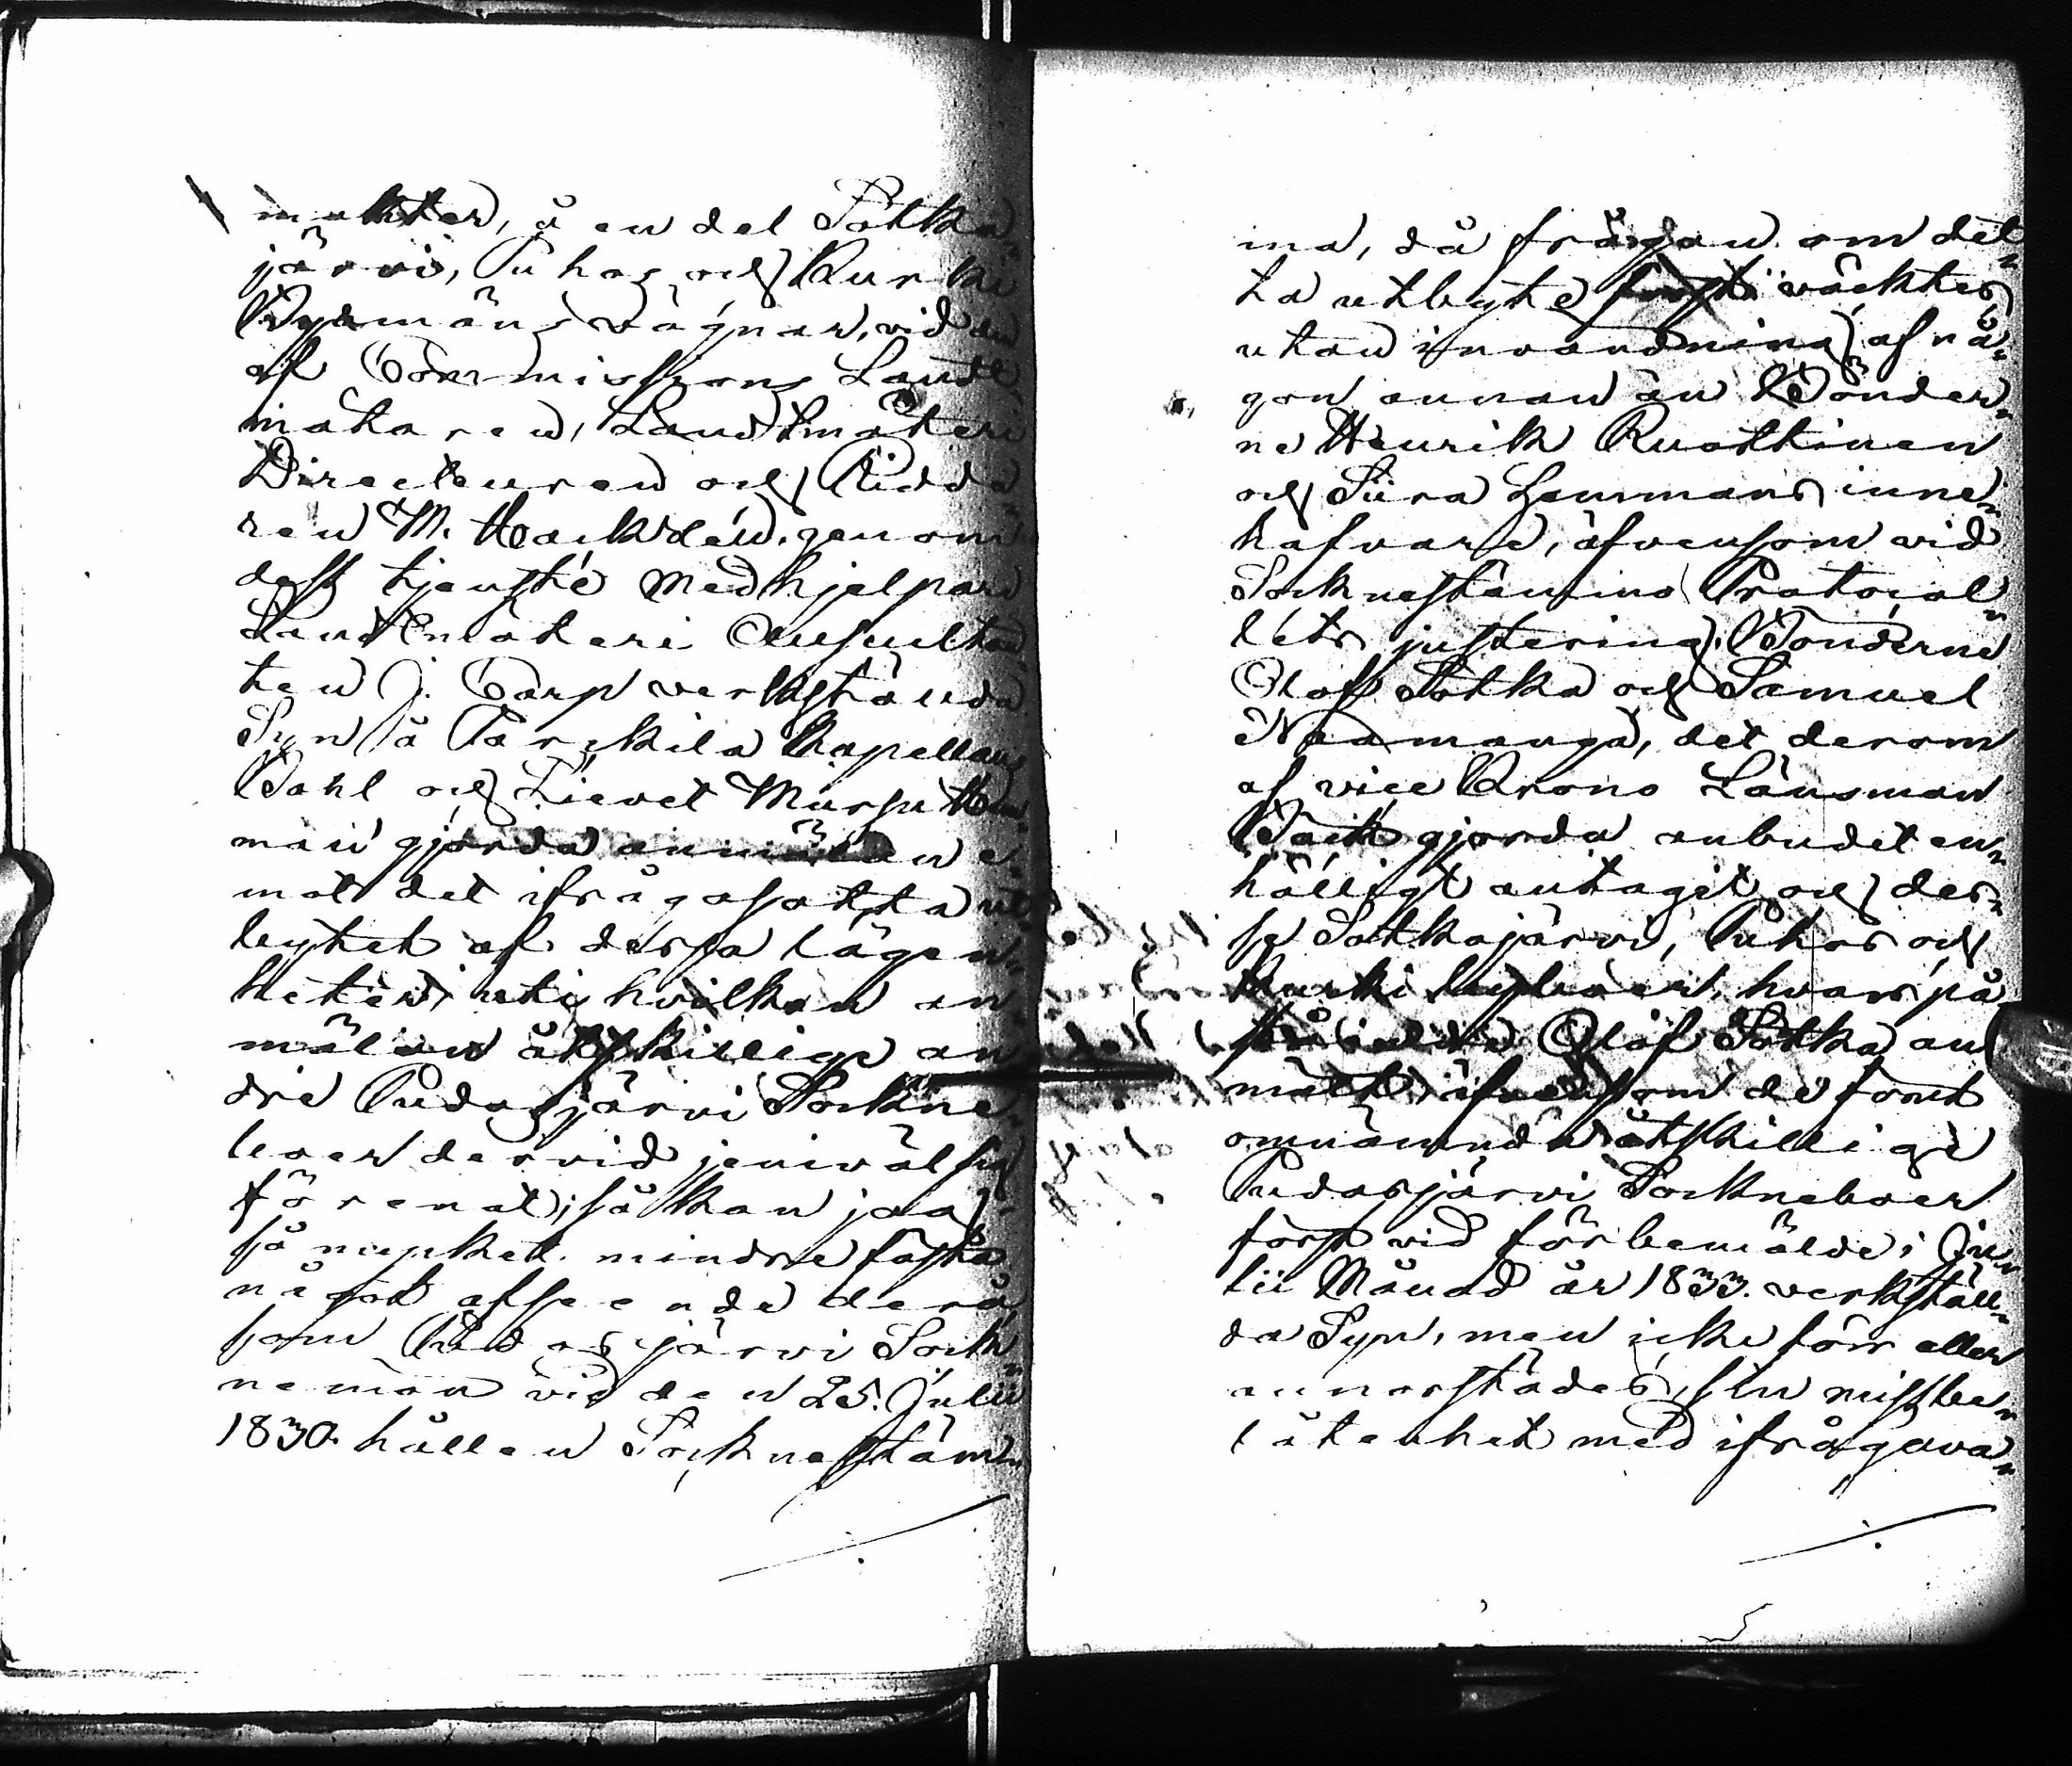 makter, å en del Sotka¬
järvi, Puhos och Kurki
Byamäns vägnar, vid en
af Commissions Landt
mätaren, Landtmäteri
Directeuren och Ridda¬
ren M. Hacklin, genom
dess tjenste Medhjelpare
Landtmäteri Auscultan¬
ten J. Carp verkstäda
Syn å Kapellans
Dahl och Lievet
man gjorda anmälan e¬
mot det ifrågasatta ut¬
bytet af dessa lägen¬
heter, uti hvilken an¬
mälan åtskillige an
dre Pudasjärvi Sockne¬
boer dervid jemväl sig
förenat; så kan jag
så mycket mindre fästa
något afseende derå,
som Pudasjärvi Sock¬
nemän vid den 25. Julii
1830. hållen Socknestäm¬
ma, då frågan om det¬
ta utbyte först väcktes,
utan invändning af nå¬
gon annan än Bönder¬
ne Henrik Ruottinen
och Siira Hemmans inne¬
hafvare, äfvensom vid
Socknestämmo Protocol¬
lets justering, Bönderne
Olof Sotka och Samuel
Naamanga, det derom
af vice Krono Länsman
gjorda anbudet en¬
hälligt antagit och des¬
se Sotkajärvi, Puhos och
Kurki byaboer, hvars på
stående Olof Sotka an
mält, äfvensom de förut
omnämnda åtskillige
Pudasjärvi Sockneboer
först vid förbemälde i Ju¬
lii Månad år 1833. verkställ¬
da Syn, men icke förr eller
annorstädes, sin missbe¬
låtenhet med ifrågava¬